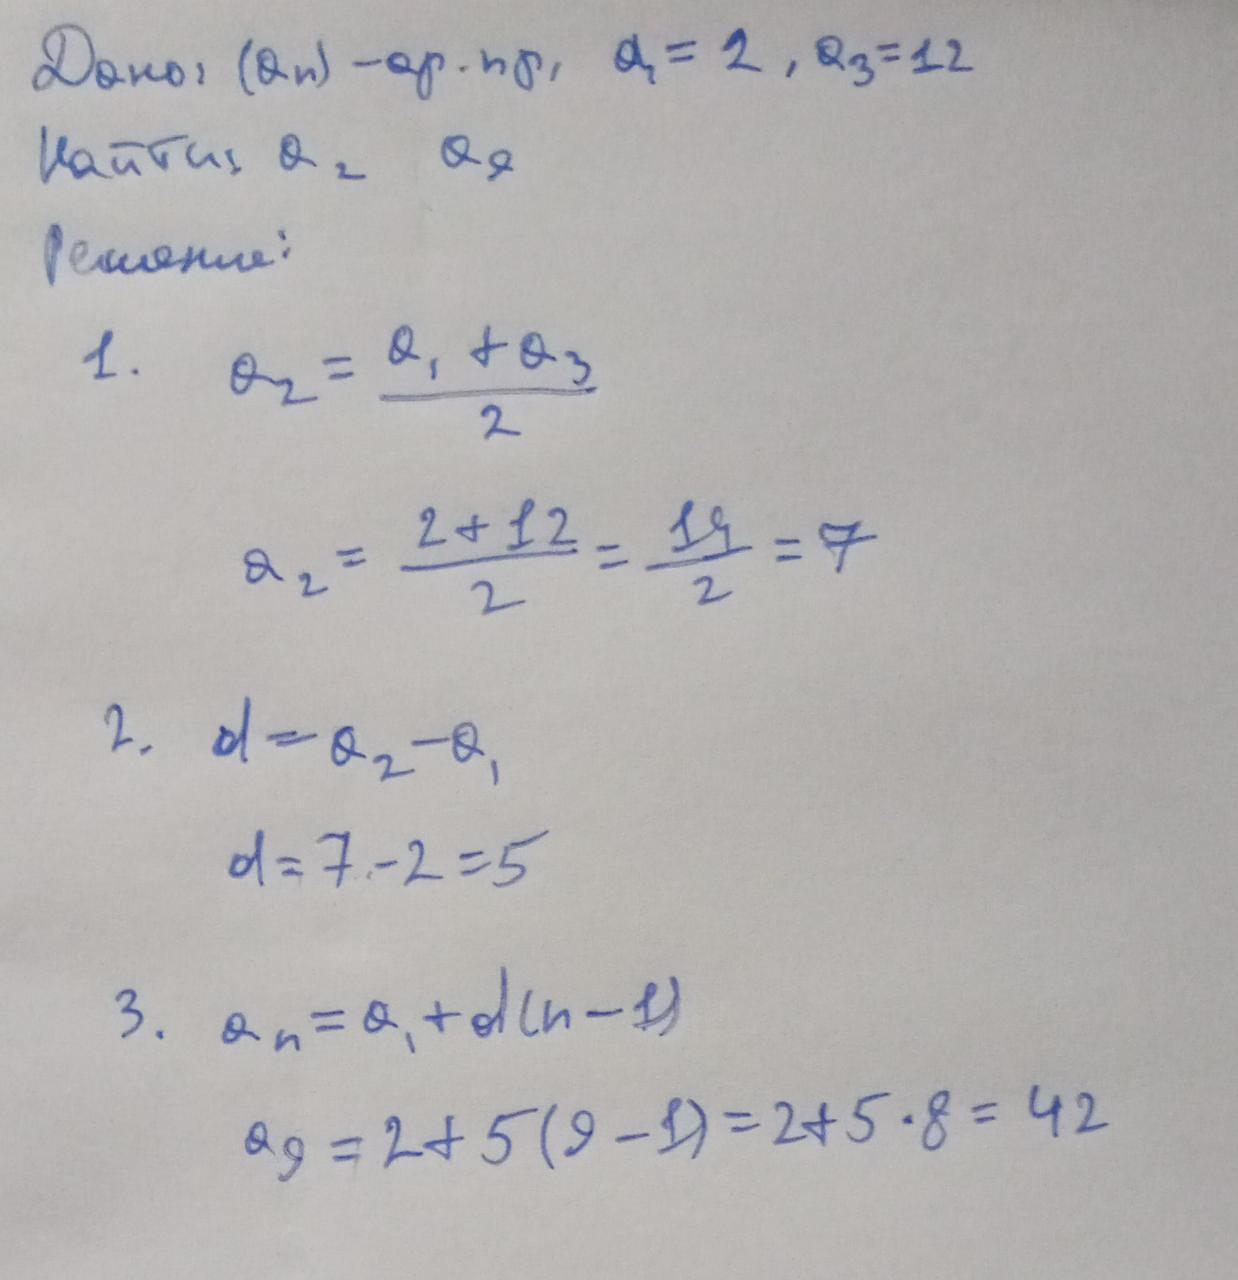 Дано: (aₙ) – ар. пр, a₁ = 2, a₃ = 12
Найти: a₂ a₉
Решение:
1. a₂ = (a₁ + a₃)/2
a₂ = (2 + 12)/2 = 14/2 = 7
2. d = a₂ – a₁
d = 7 - 2 = 5
3. aₙ = a₁ + d(n – 1)
a₉ = 2 + 5(9 – 1) = 2 + 5 · 8 = 42